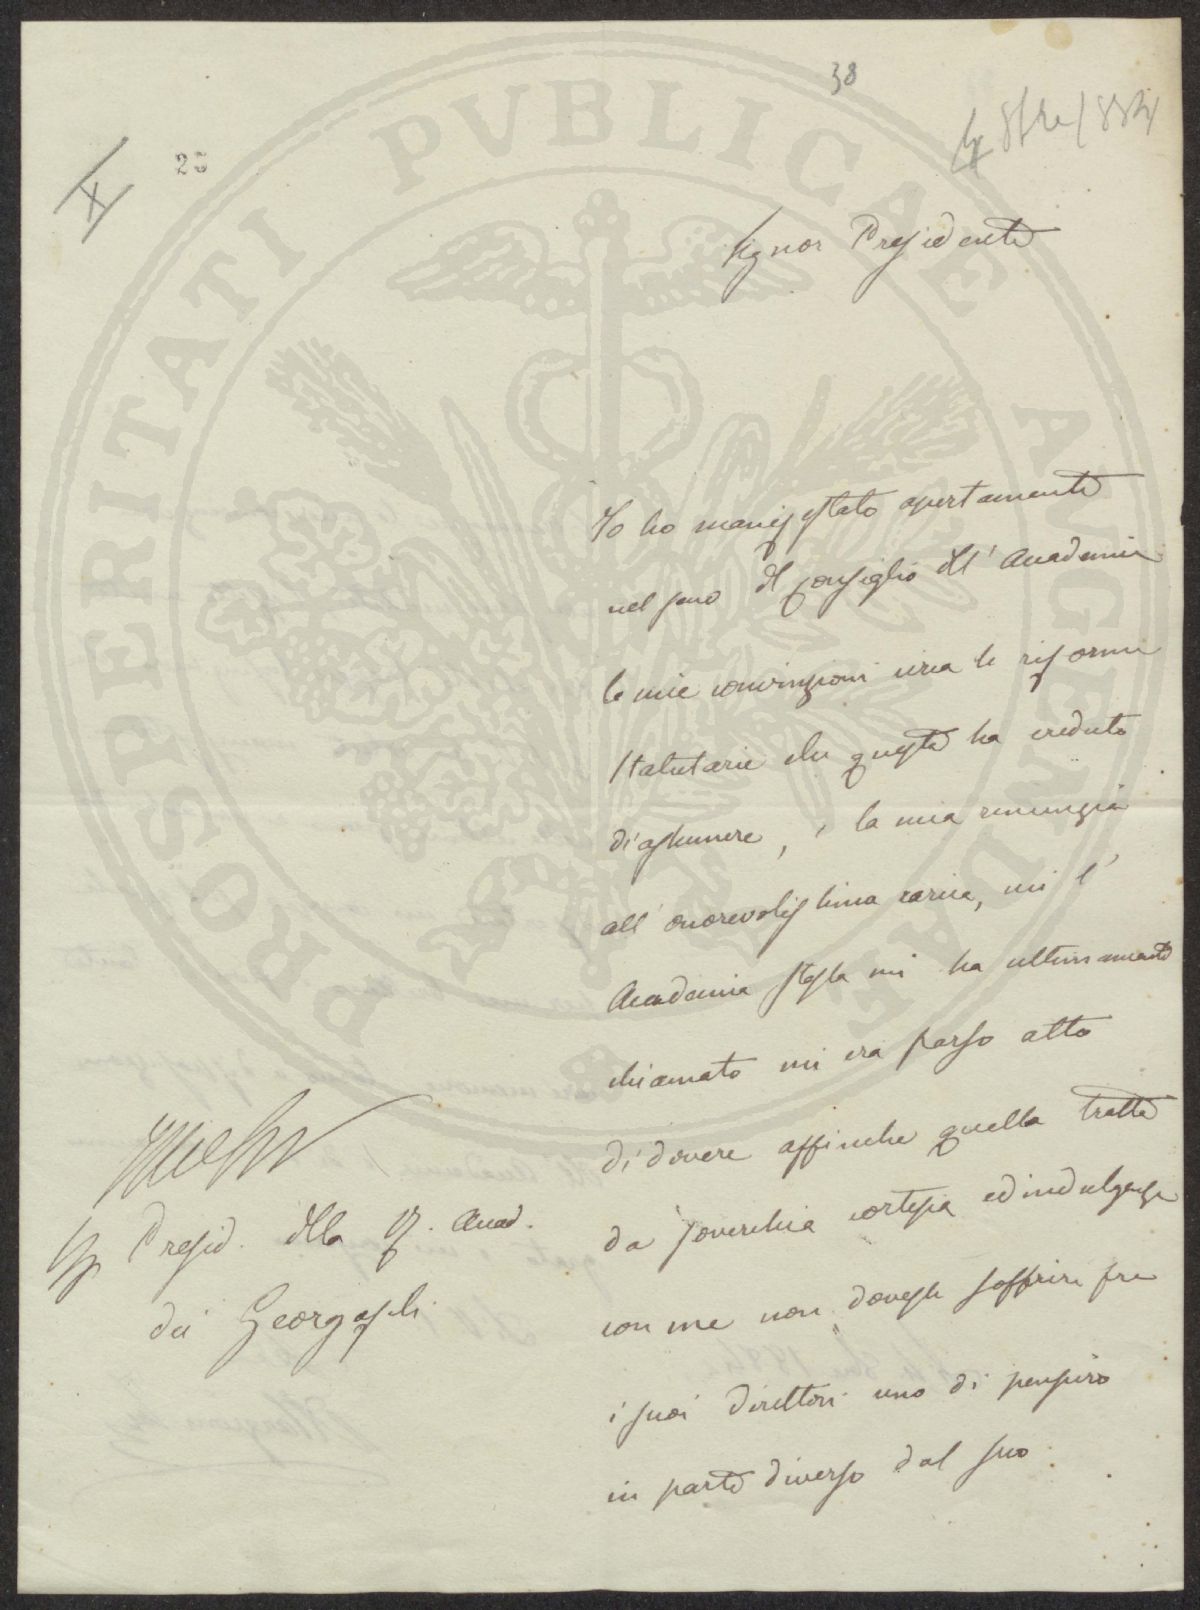 38
4 8bre 1884
X
25
Signor Presidente
Io ho manifestato apertamente
nel seno del Consiglio dell' Accademia
le mie convinzioni circa le riforme
Statutarie che questa ha creduto
di assumere, e la mia renunzia
all' onorevolissima carica, cui l'
Accademia stessa mi ha ultimamente
chiamato mi era parso atto
di dovere affinche quella tratta
da soverchia cortesia ed indulgenza
con me non dovesse soffrire fra
i suoi direttori uno di pensiero
in parte diverso dal suo.
Presid. della R. Accad.
dei Georgofili
PROSPERITATI PVBLICAE AVGENDAE